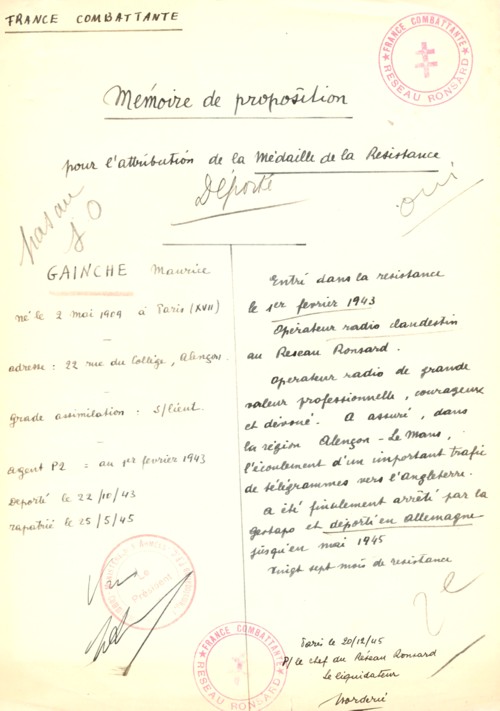 FRANCE COMBATTANTE
FRANCE COMBATTANTE
RESEAU RONSARD
Mémoire de proposition
pour l'attribution de la Médaille de la Resistance
Déporté
oui
GAINCHE Maurice
né le 2 mai 1909 à Paris (XVII)
adresse : 22 rue du Collège, Alençon.
Grade assimilation : S/lieut.
Agent P2 = au 1er fevrier 1943
Deporté le 22/10/43
rapatrié le 25/5/45
Entré dans la resistance
le 1er fevrier 1943
Opérateur radio clandestin
au Reseau Ronsard.
Operateur radio de grande
valeur professionnelle, courageux
et dévoué. A assuré, dans
la région Alençon-Le Mans,
l'écoulement d'un important trafic
de télégrammes vers l'Angleterre.
a été finalement arrêté par la
Gestapo et déporté en Allemagne
jusqu'en mai 1945
Vingt sept mois de resistance
Le
Président
Paris le 20/12/45
P/ le chef du Réseau Ronsard
Le liquidateur
FRANCE COMBATTANTE
RESEAU RONSARD